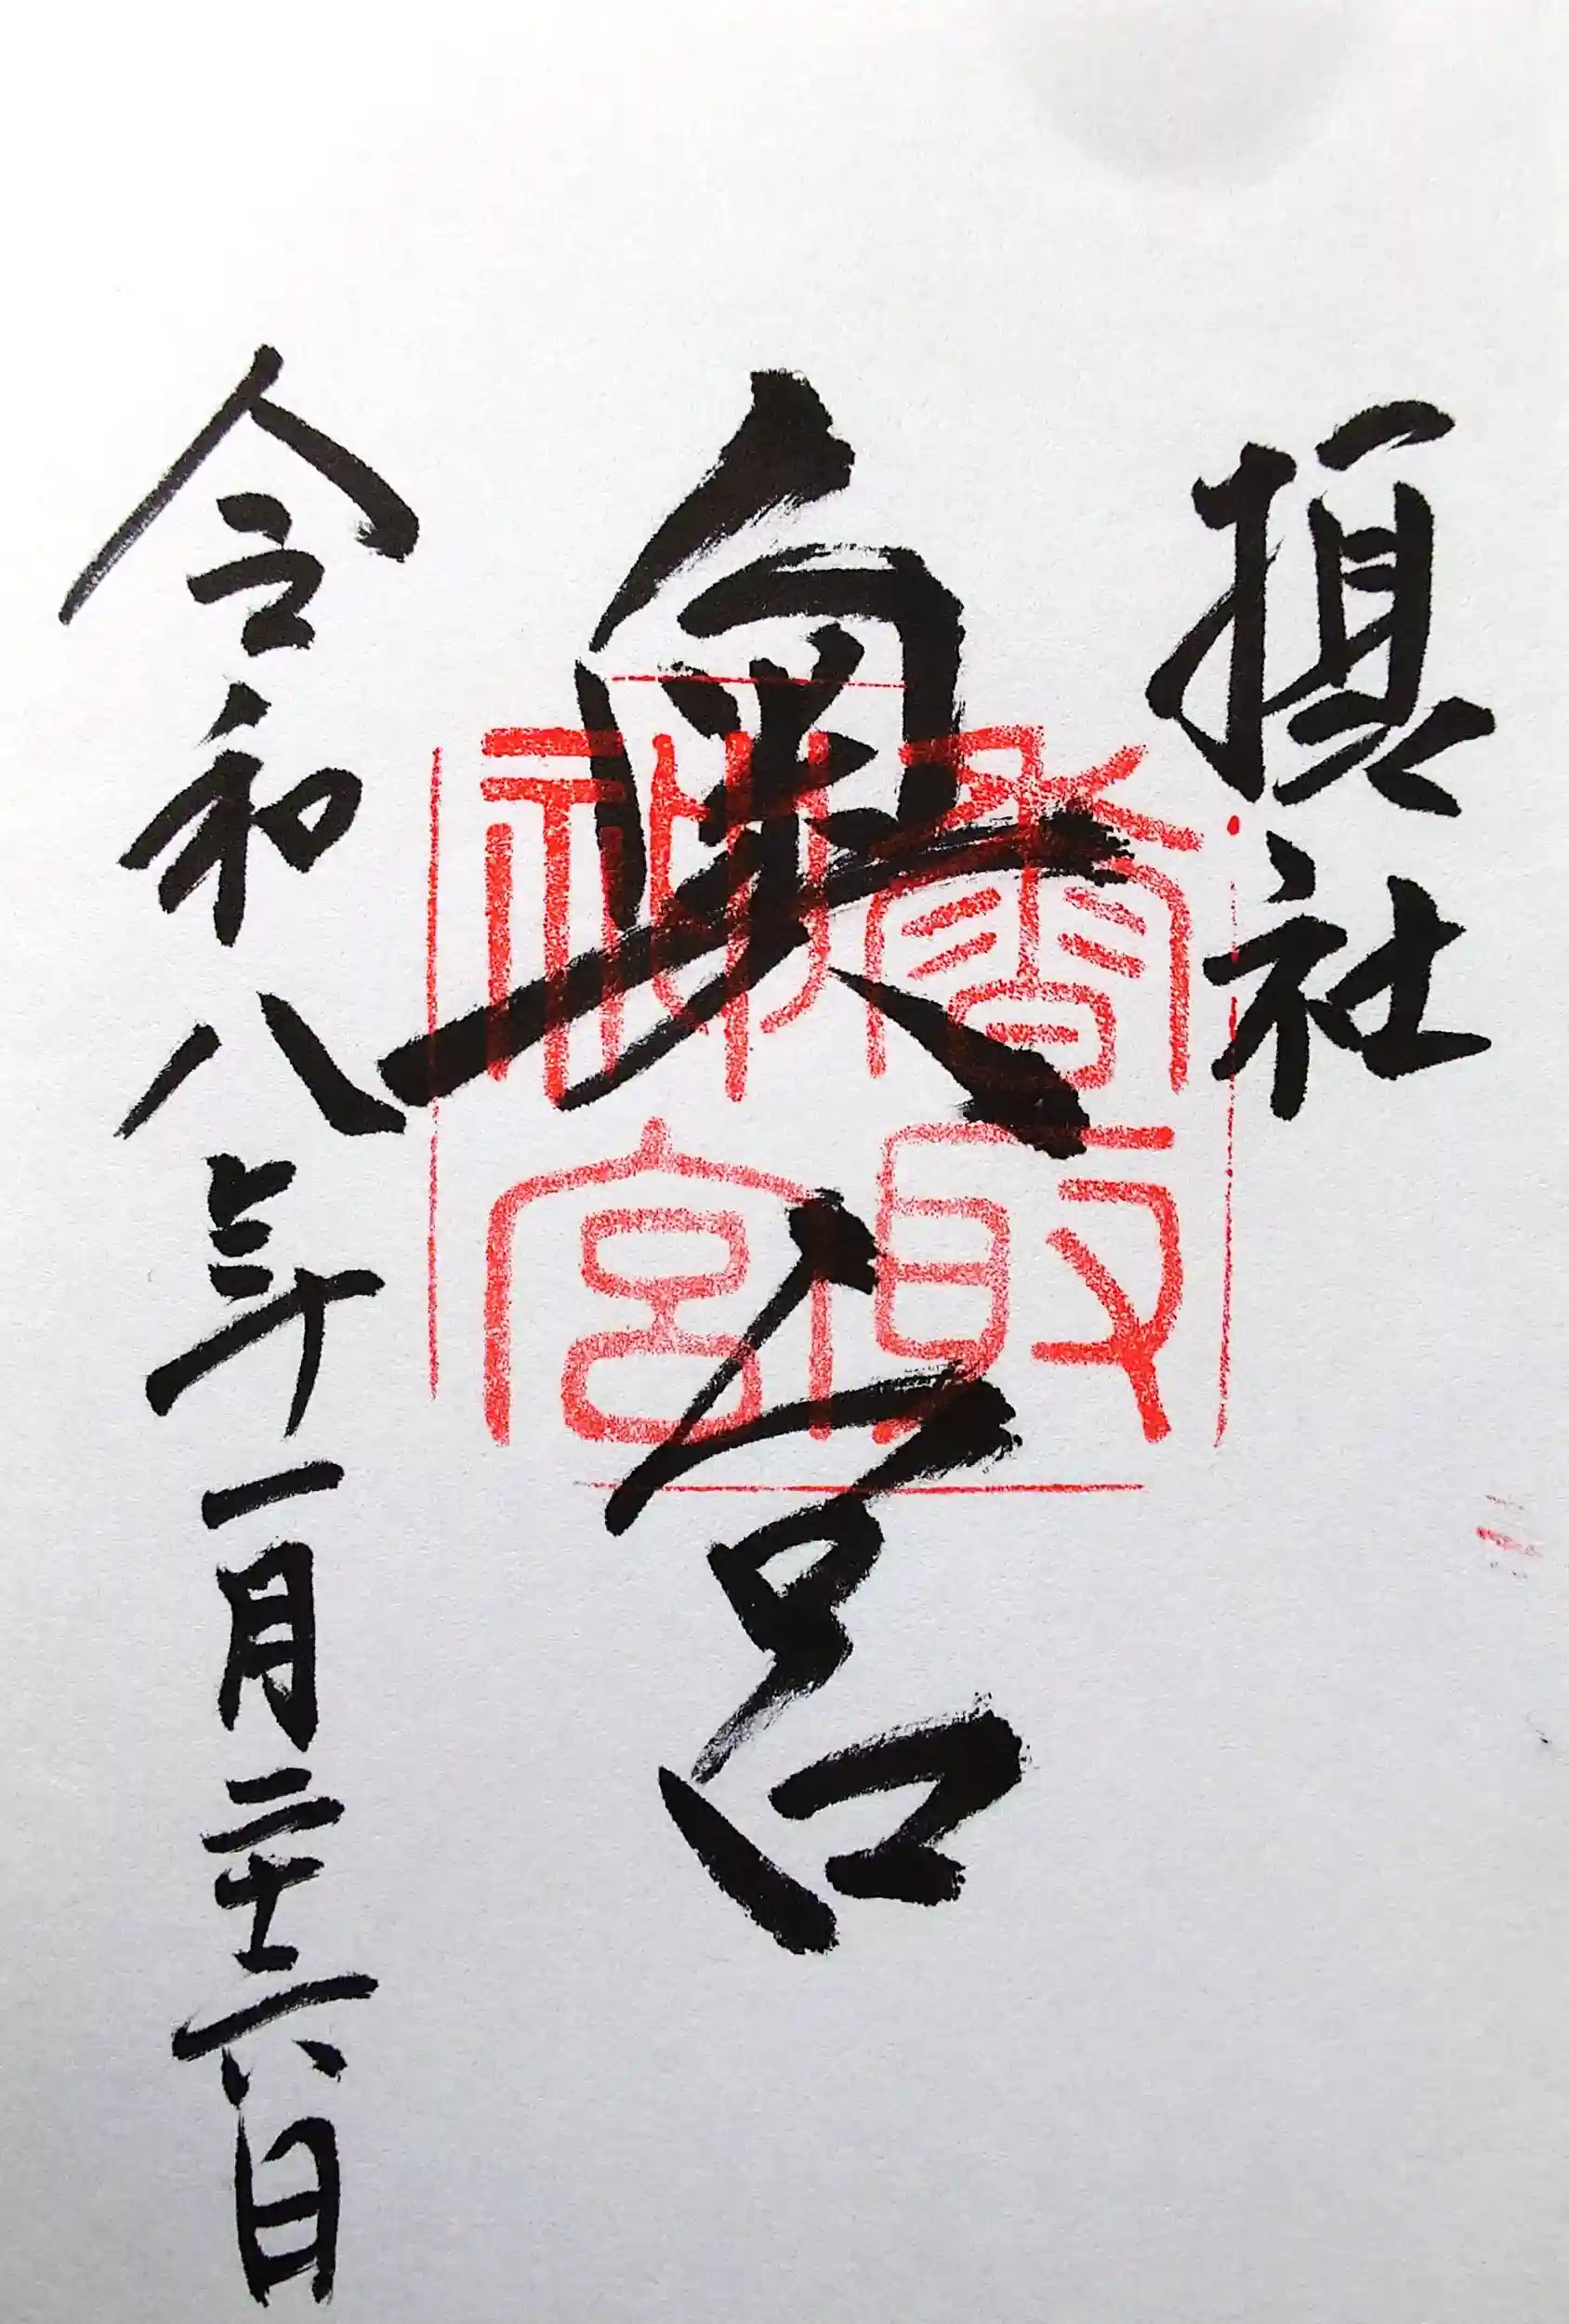 摂社
奥宮
香取
神宮
令和八年一月二十六日